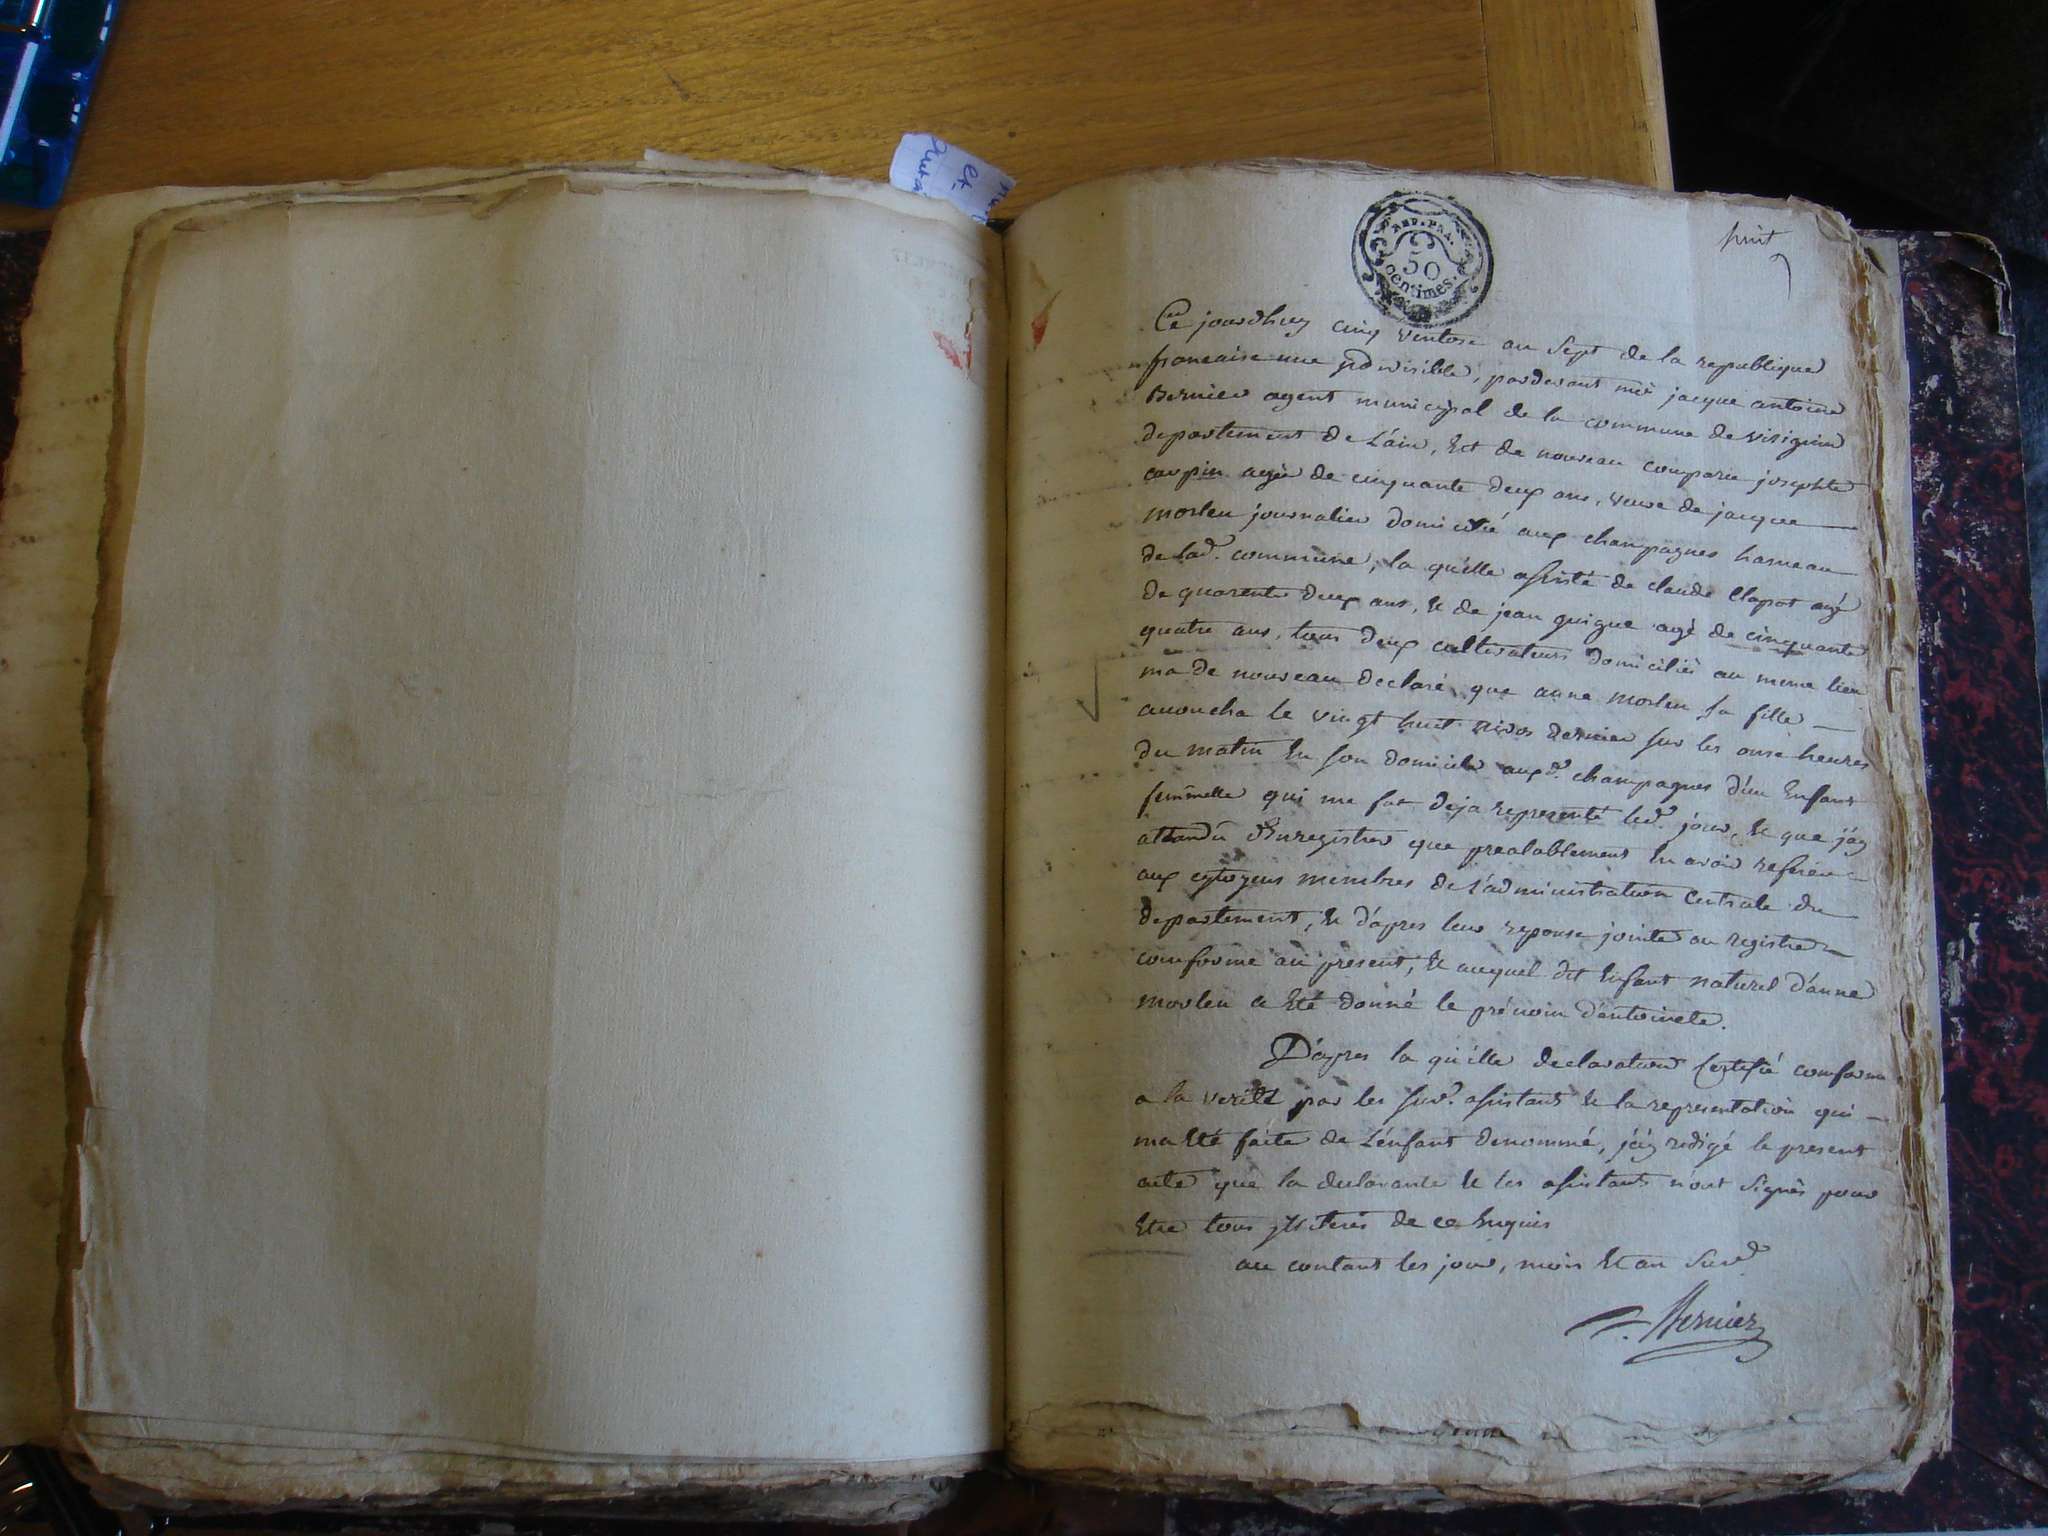 et
REP. FRA.
50
centimes.
huit
Ce jourdhuy cinq ventose an Sept de la republique
francaise une indivisible, pardevant moi jacque antoine
Bernier agent municipal de la commune de virignin
departement de L'ain, Est de nouveau comparu josephte
carpin agée de cinquante deux ans, veuve de jacque
morleu journalier domicilié aux champagnes hameau
de lad. commune, la quelle assisté de claude Clapot agé
de quarente deux ans, & de jean guigue agé de cinquante
quatre ans, tous deux cultivateurs domiciliés au meme lieu
ma de nouveau declaré que anne morleu sa fille
accoucha le vingt huit nivos dernier sur les onse heures
du matin En son domicile auxd. champagnes d'un Enfant
femmelle qui me fut deja representé led. jour, & que j'ay
attendu d'Enregistrer que prealablement En avoir referé
aux cytoyens membres de L'administration Centrale du
departement, & d'apres leur reponse jointe au registre
conforme au present, & auquel dit Enfant naturel d'anne
morleu a Eté donné le prénom d'antoinete.
D'apres la quelle declaration Certifié conforme
a la verité par les susd. assistans & la representation qui
ma Eté faite de L'enfant denommé, j'ay redigé le present
acte que la declarante & les assistants n'ont signés pour
Etre tous illiterés de ce Enquis
au contant les jour, mois & an Susd.
Bernier